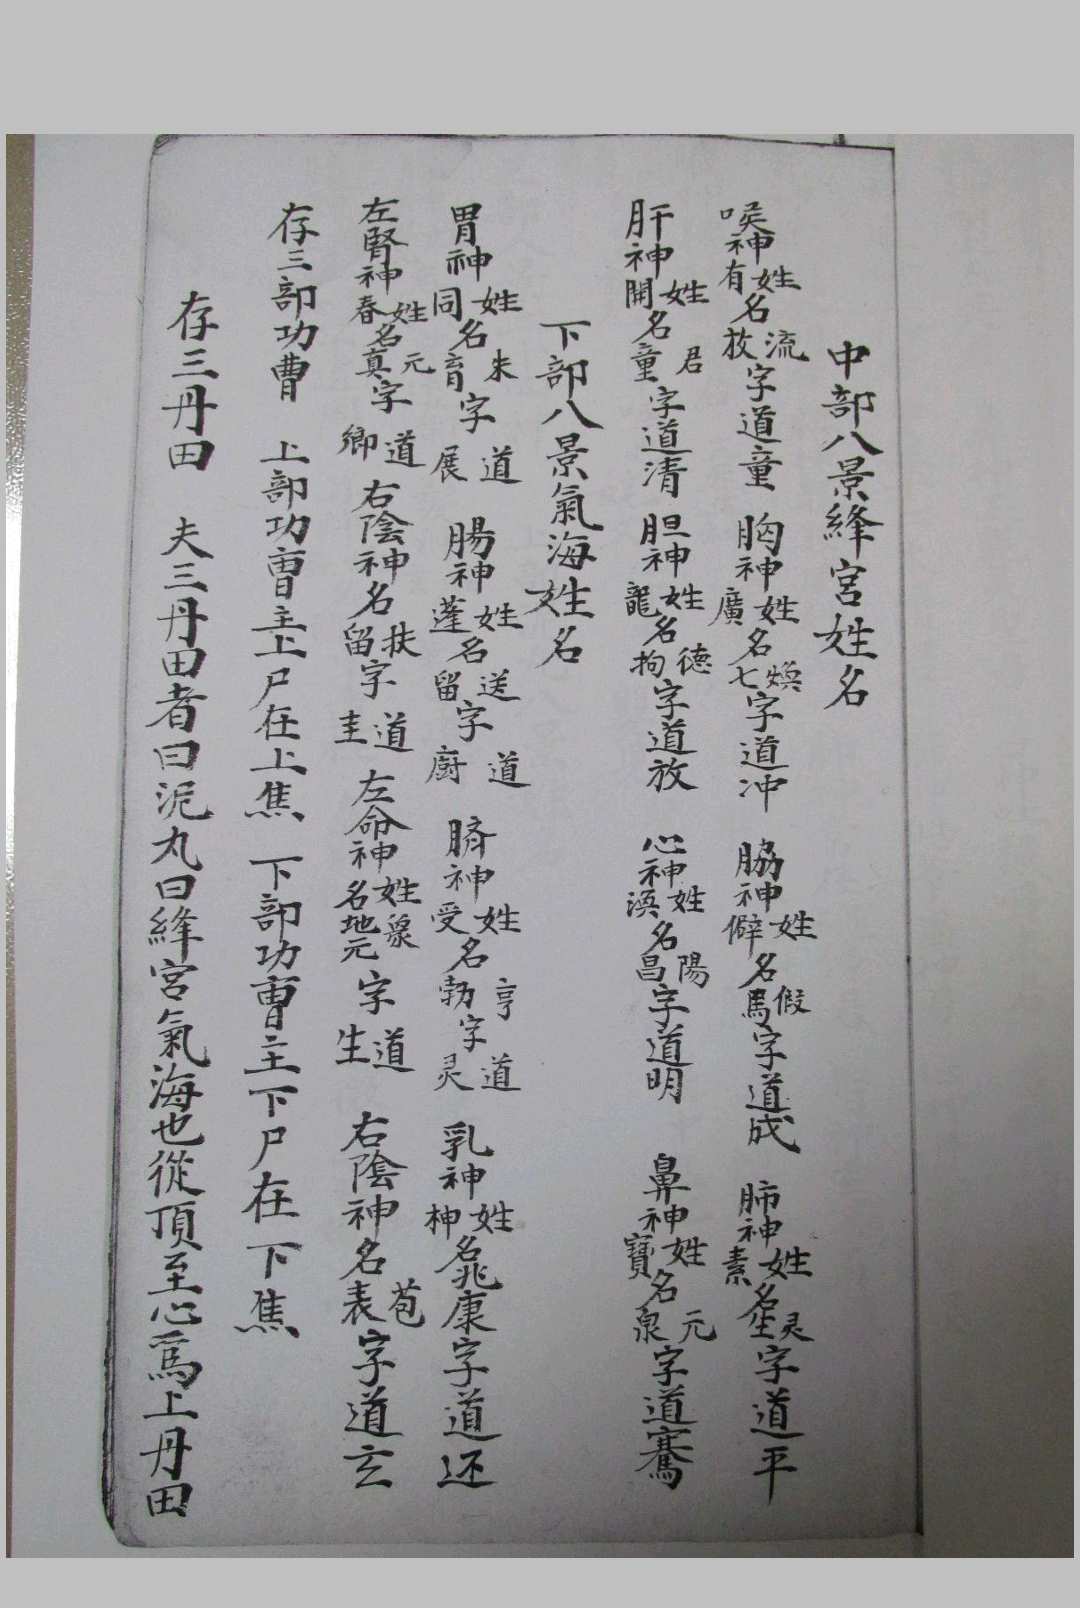 中部八景絳宮姓名
喉神姓有名流放字道童　胸神姓廣名煥七字道冲　脇神姓僻名假馬字道成　肺神姓素名灵生字道平
肝神姓開名君童字道清　胆神姓龍名德拘字道放　心神姓渙名陽昌字道明　鼻神姓寶名元泉字道騫
下部八景氣海姓名
胃神姓同名朱育字道展　腸神姓蓬名送留字道廚　臍神姓受名亨勃字道灵　乳神姓柛名兆康字道还
左腎神姓春名元真字道卿　右陰神名扶留字道圭　左命神姓泉名地元字道生　右陰神名苞表字道玄
存三部功曹　上部功曹主上尸在上焦　下部功曹主下尸在下焦
存三丹田　夫三丹田者曰泥丸曰絳宮氣海也從頂至心爲上丹田